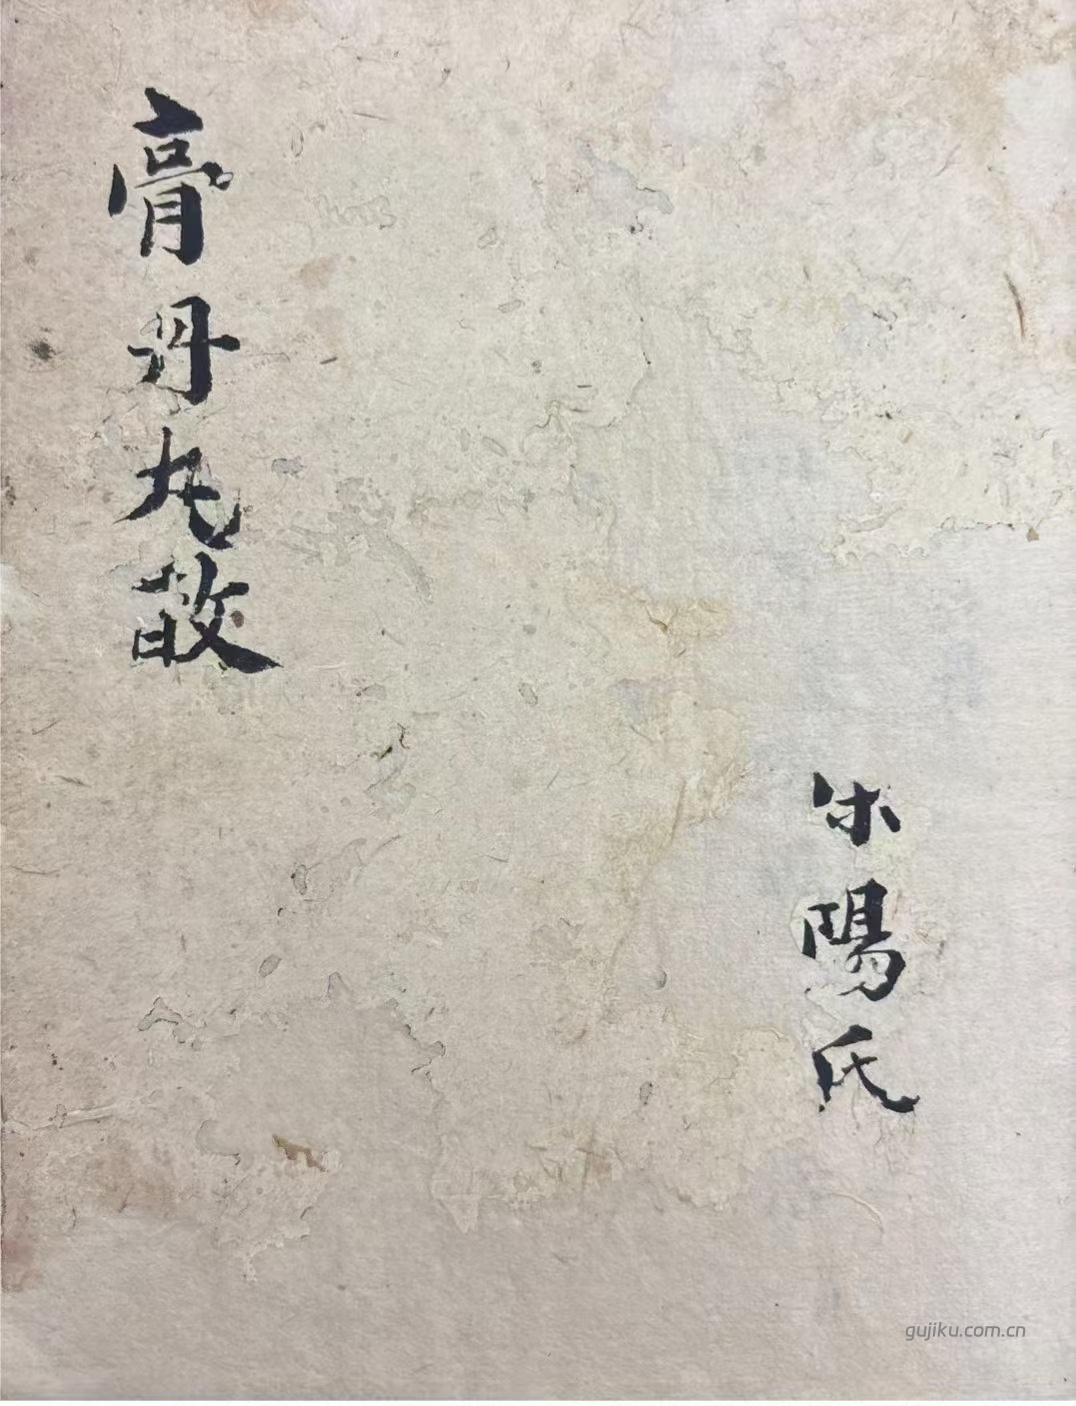 陽氏
膏丹丸散
gujiku.com.cn